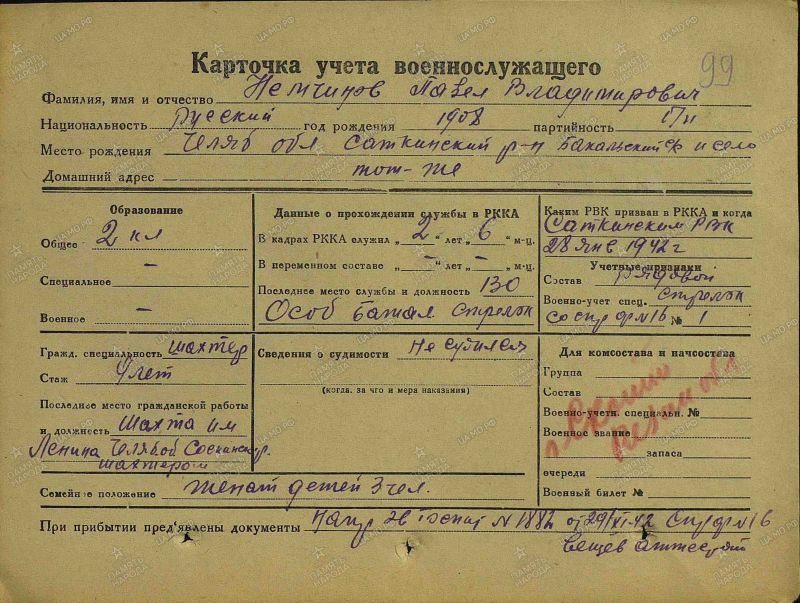 99
Карточка учета военнослужащего
Фамилия, имя и отчество Немчинов Павел Владимирович
Национальность Русский год рождения 1908 партийность б/п
Место рождения Челяб обл Саткинский р-н Бакальский село
Домашний адрес тот-же
Образование
Общее 2 кл
Специальное –
Военное –
Данные о прохождении службы в РККА
В кадрах РККА служил „ 2 " лет „ 6 " м-ц.
В переменном составе „ – " лет „ – " м-ц.
Последнее место службы и должность 130
Особ Батал Стрелок
Каким РВК призван в РККА и когда
Саткинским РВК
28 янв 1942г
Учетные признаки
Состав рядовой
Военно-учет спец. стрелок
№ 1
Гражд. специальность шахтер
Стаж 4 лет
Последнее место гражданской работы
и должность Шахта им
Ленина Челябоб
шахтером
Сведения о судимости Не судился
(когда, за что и мера наказания)
Для комсостава и начсостава
Группа
Состав
Военно-учетн. специальн. №
Военное звание
запаса
очереди
Военный билет №
Семейное положение женат детей 3 чел.
При прибытии пред'явлены документы Напр эв госпит N 1882 от 29/XI-42
Вещев аттестат